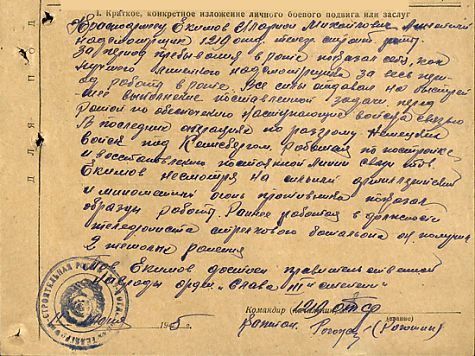 I. Краткое, конкретное изложение личного боевого подвига или заслуг
Красноармеец Екимов Мартын Михайлович линейный
надсмотрщик 1210 отд. телегр. строит. роты
За период пребывания в роте показал себя, как
лучшего линейного надсмотрщика за весь пери-
од работы в роте. Все силы отдавал на быстрей-
шее выполнение поставленной задачи перед
ротой по обеспечению наступающих войск связью
В последние операции по разгрому Немецких
войск под Кенигсбергом. Работая по постройке
и восстановлению постоянной линии связи тов.
Екимов несмотря на сильный артиллерийский
и минометный огонь противника показал
образцы работы. Раннее работая в должности
телефониста стрелкового батальона он получил
2 тяжелых ранения
Тов. Екимов достоин правительственной
награды орден "Слава III степени"
Командир 1210 отср
1945 г.